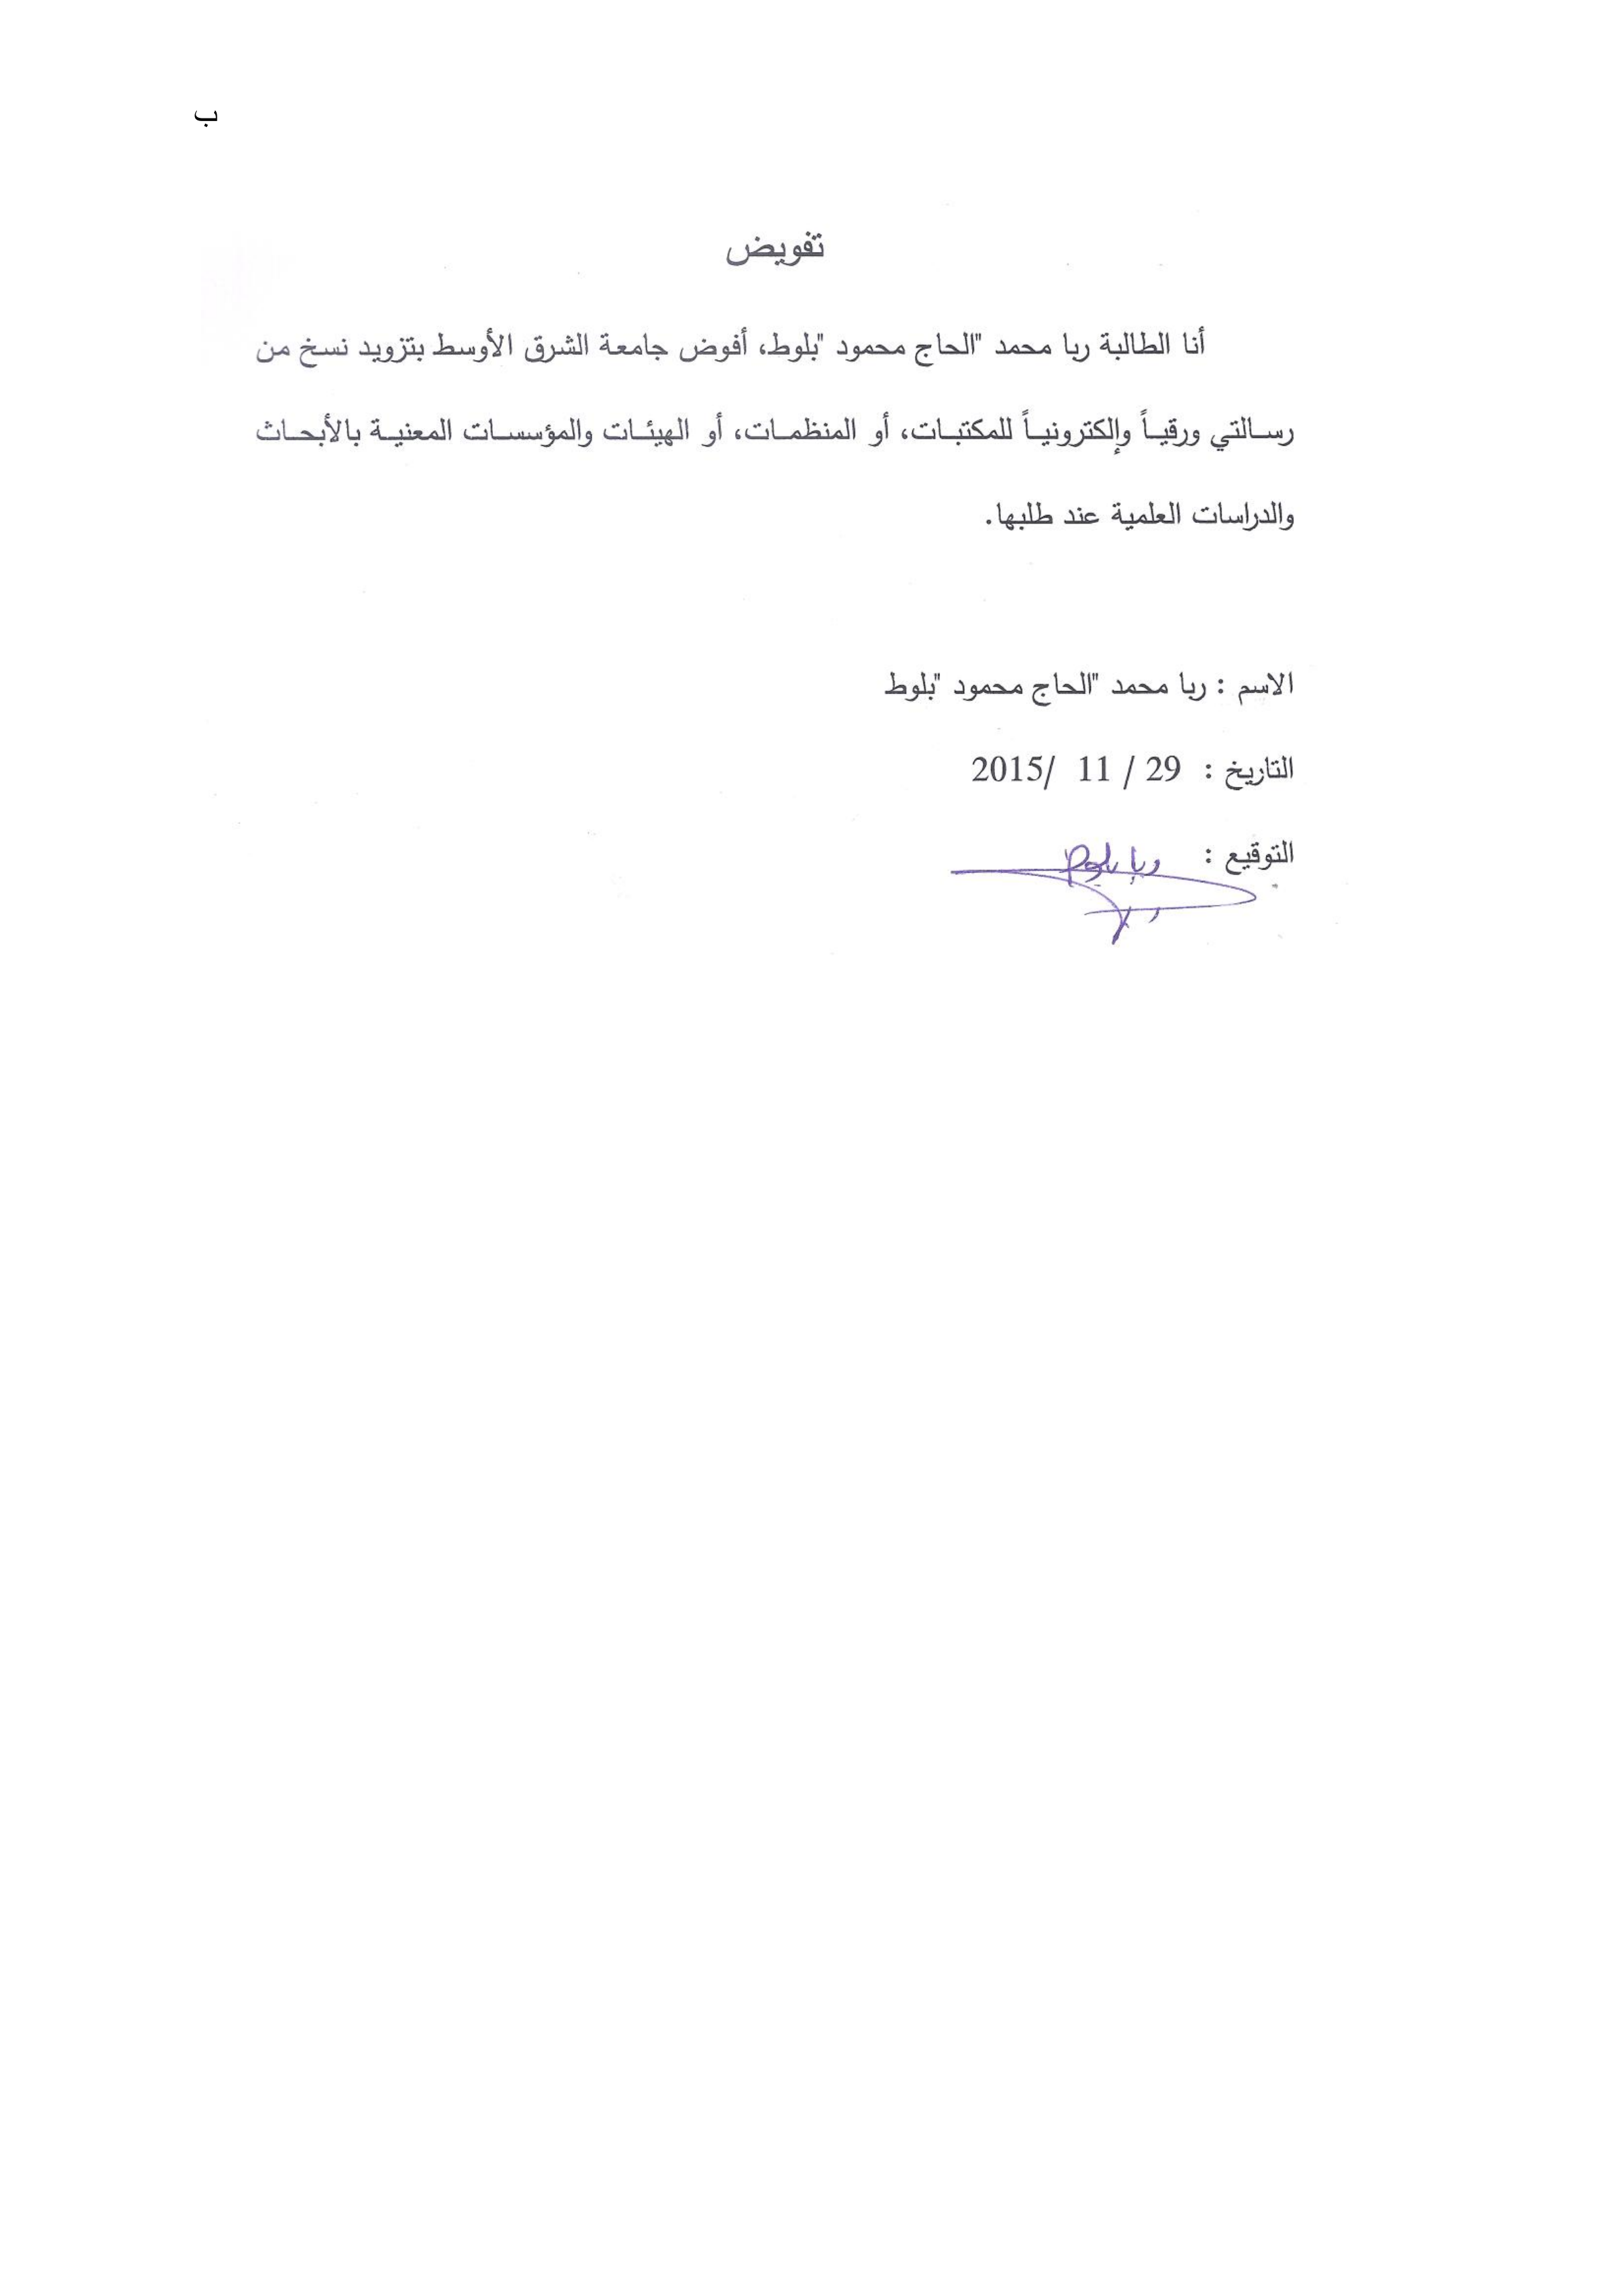 ب
تفويض
أنا الطالبة ربا محمد "الحاج محمود "بلوط، أفوض جامعة الشرق الأوسط بتزويد نسخ من
رسالتي ورقياً وإلكترونياً للمكتبات، أو المنظمات، أو الهيئات والمؤسسات المعنية بالأبحاث
والدراسات العلمية عند طلبها.
الاسم : ربا محمد "الحاج محمود "بلوط
التاريخ : 29 / 11 /2015
التوقيع : ربا